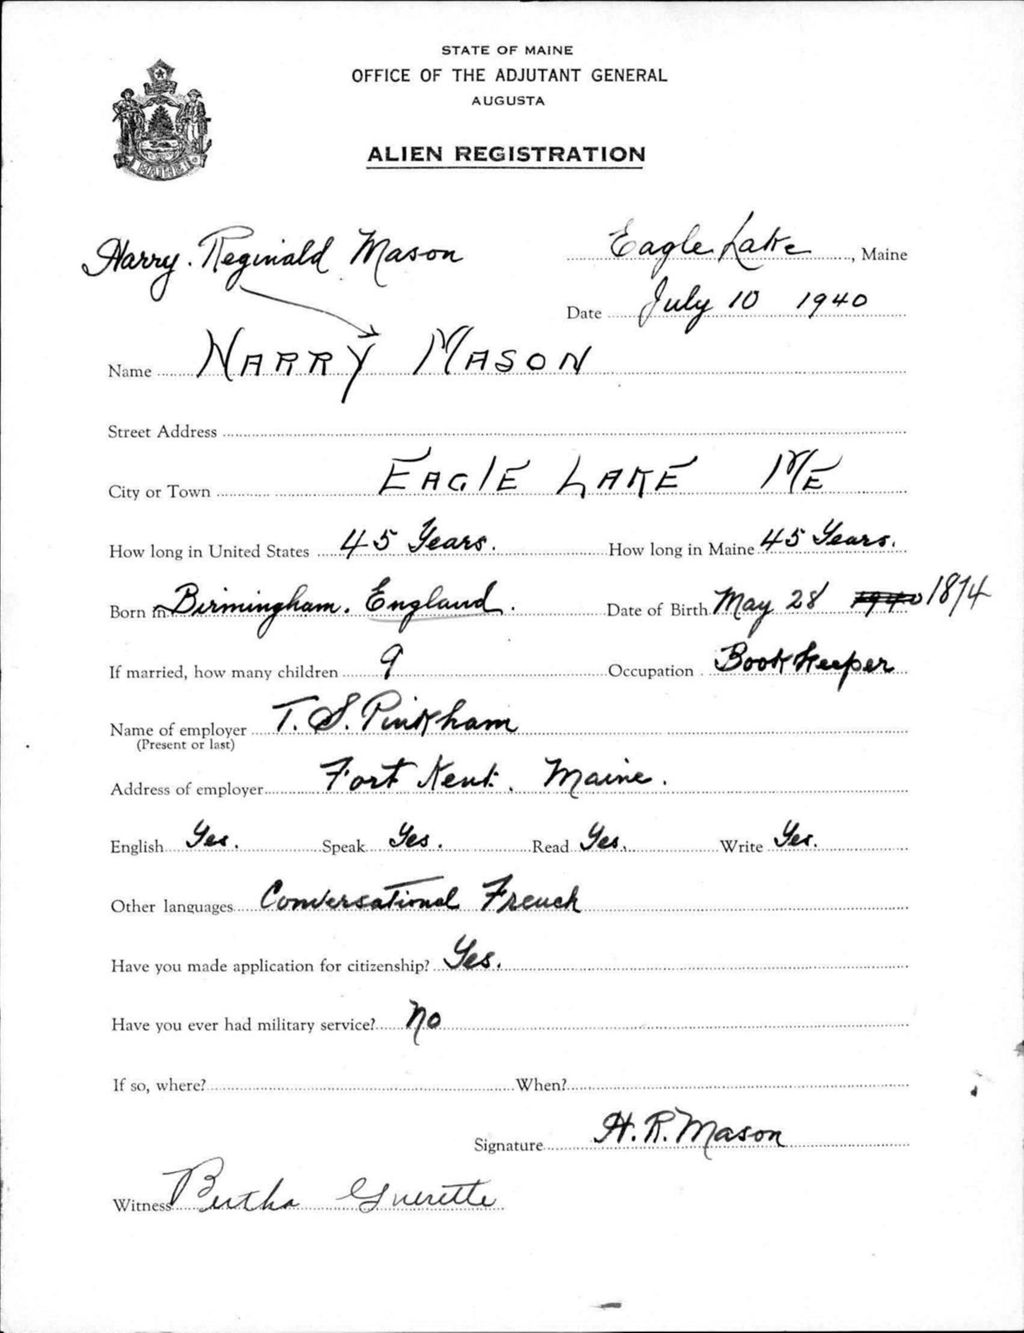 STATE OF MAINE
OFFICE OF THE ADJUTANT GENERAL
AUGUSTA
ALIEN REGISTRATION
MAINE
Harry. Reginald Mason
Eagle Lake, Maine
Date July 10 1940
Name HARRY MASON
Street Address
City or Town EAGlE LAKE ME
How long in United States 45 Years. How long in Maine 45 Years.
Born in Birmingham. England. Date of Birth May 28 1940 1874
If married, how many children 9 Occupation Book Keeper
Name of employer T. S. Pinkham
(Present or last)
Address of employer Fort Kent. Maine.
English Yes. Speak Yes. Read Yes. Write Yes.
Other languages Conversational French
Have you made application for citizenship? Yes.
Have you ever had military service? No
If so, where? When?
Signature H. R. Mason
Witness Bertha Guerette